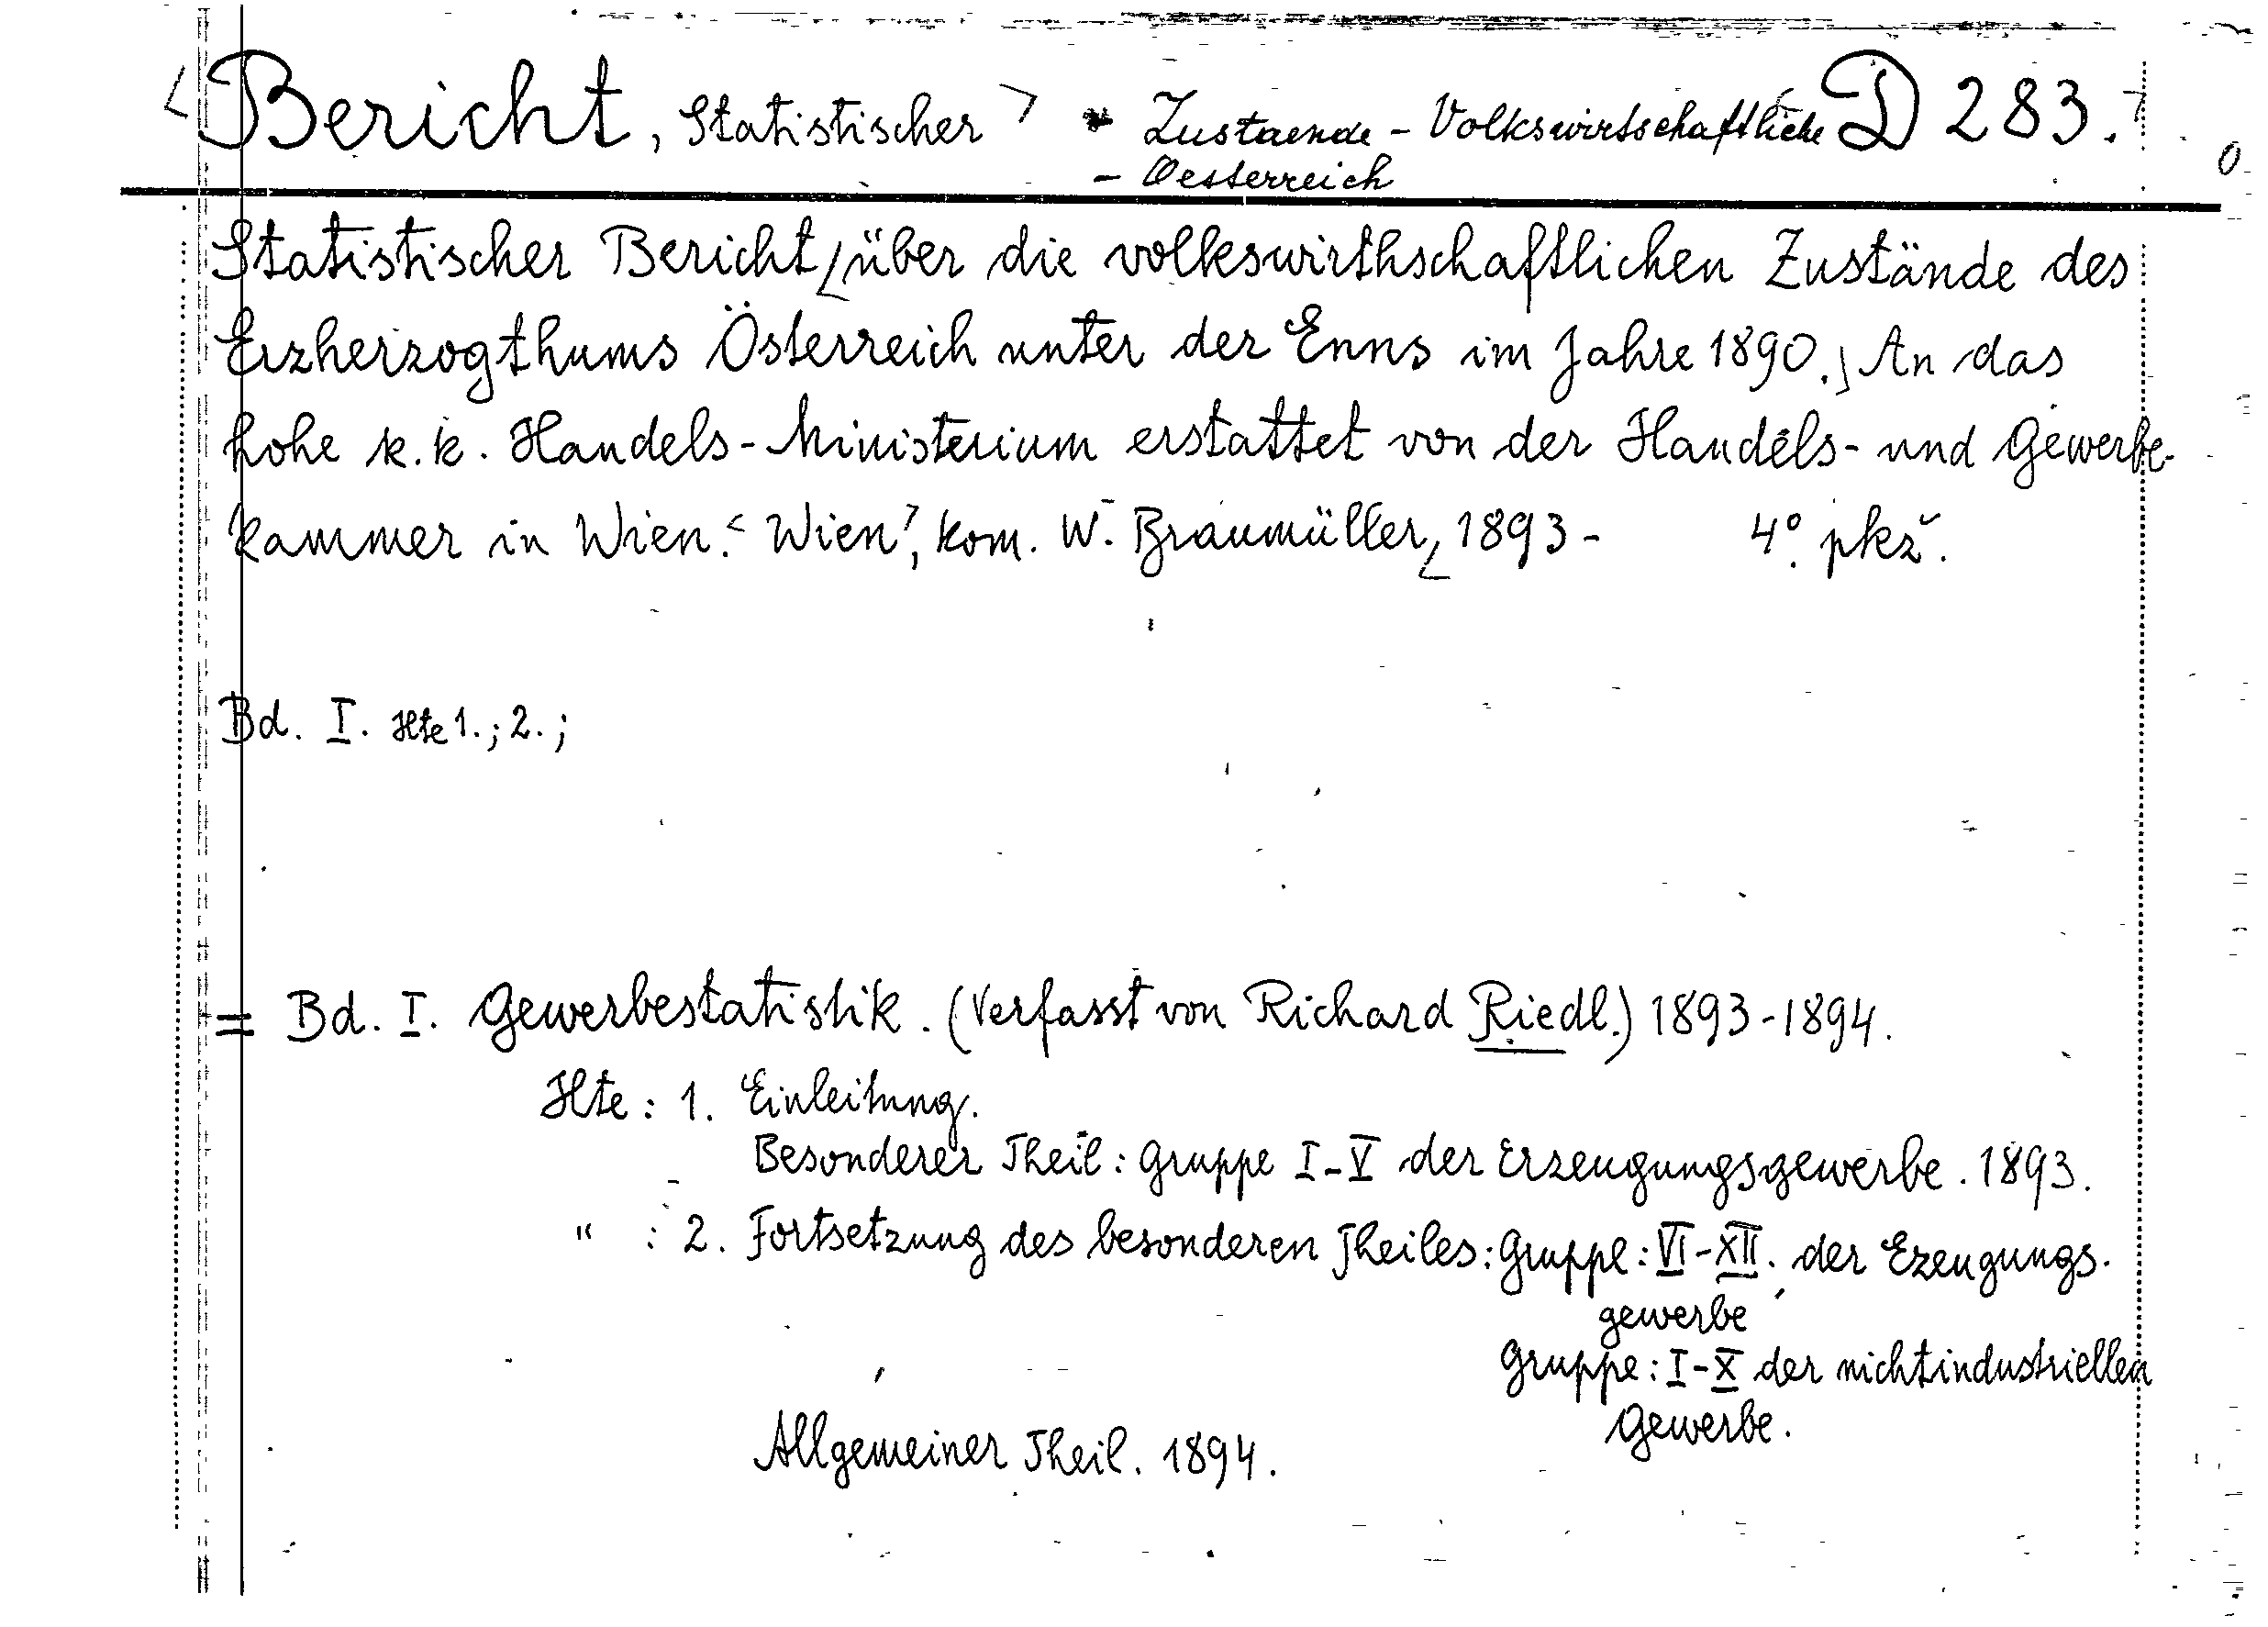 <Bericht, Statistischer> * Zustaende - Volkswirtschaftliche D 283.
- Oesterreich
Statistischer Bericht über die volkswirthschaftlichen Zustände des
Erzherzogthums Österreich unter der Enns im Jahre 1890. An das
hohe k.k. Handels-Ministerium erstattet von der Handels- und Gewerbe-
kammer in Wien. <Wien>, kom. W. Braumüller, 1893 - 4°. pkž.
Bd. I. Hte 1.; 2.;
= Bd. I. Gewerbestatistik. (Verfasst von Richard Riedl.) 1893-1894.
Hte: 1. Einleitung.
Besonderer Theil: Gruppe I-V der Erzeugungsgewerbe. 1893.
" : 2. Fortsetzung des besonderen Theiles: Gruppe: VI-XII. der Ezeugungs-
gewerbe
Gruppe: I-X der nichtindustriellen
Gewerbe.
Allgemeiner Theil. 1894.